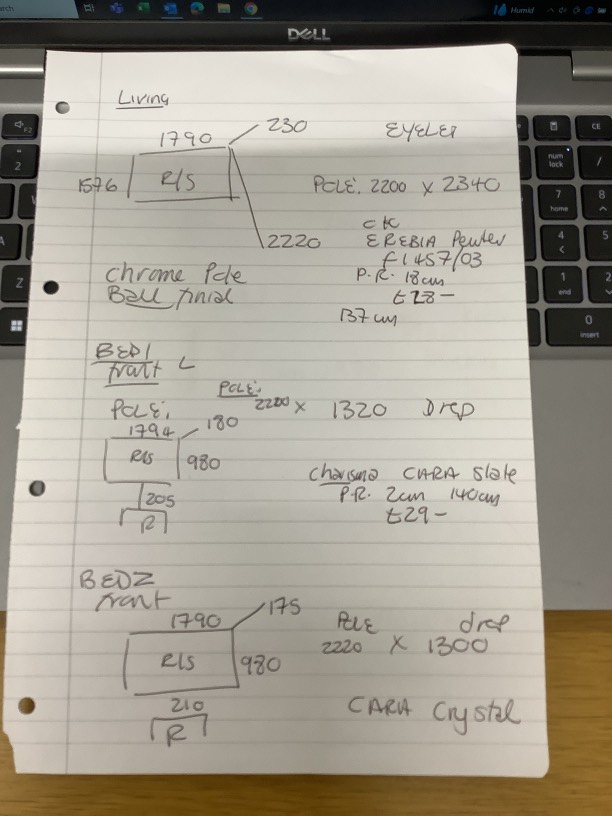 Humid
DELL
Living
1790
230
EYELET
1576
R/S
POLE. 2200 x 2340
2220
CTC
EREBIA Pewter
F1457/03
P.R. 18cm
£28-
137cm
Chrome Pole
Ball finial
BED1
front L
POLE:
2200 x 1320 Drop
POLE.
1794
180
R/S
980
205
R
Charisma CARA Slate
P.R. 2cm 140cm
£29-
BED2
front
1790
175
R/S
980
210
R
POLE drop
2220 x 1300
CARA Crystal